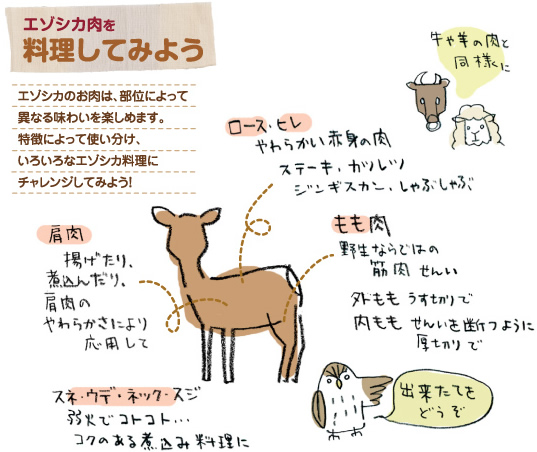 エゾシカ肉を
料理してみよう
エゾシカのお肉は、部位によって
異なる味わいを楽しめます。
特徴によって使い分け、
いろいろなエゾシカ料理に
チャレンジしてみよう!
牛や羊の肉と
同様に
ロース・ヒレ
やわらかい赤身の肉
ステーキ、カツレツ
ジンギスカン、しゃぶしゃぶ
肩肉
揚げたり、
煮込んだり、
肩肉の
やわらかさにより
応用して
もも肉
野生ならではの
筋肉せんい
外もも うす切りで
内もも せんいを断つように
厚切りで
スネ・ウデ・ネック・スジ
弱火でコトコト…
コクのある煮込み料理に
出来たてを
どうぞ